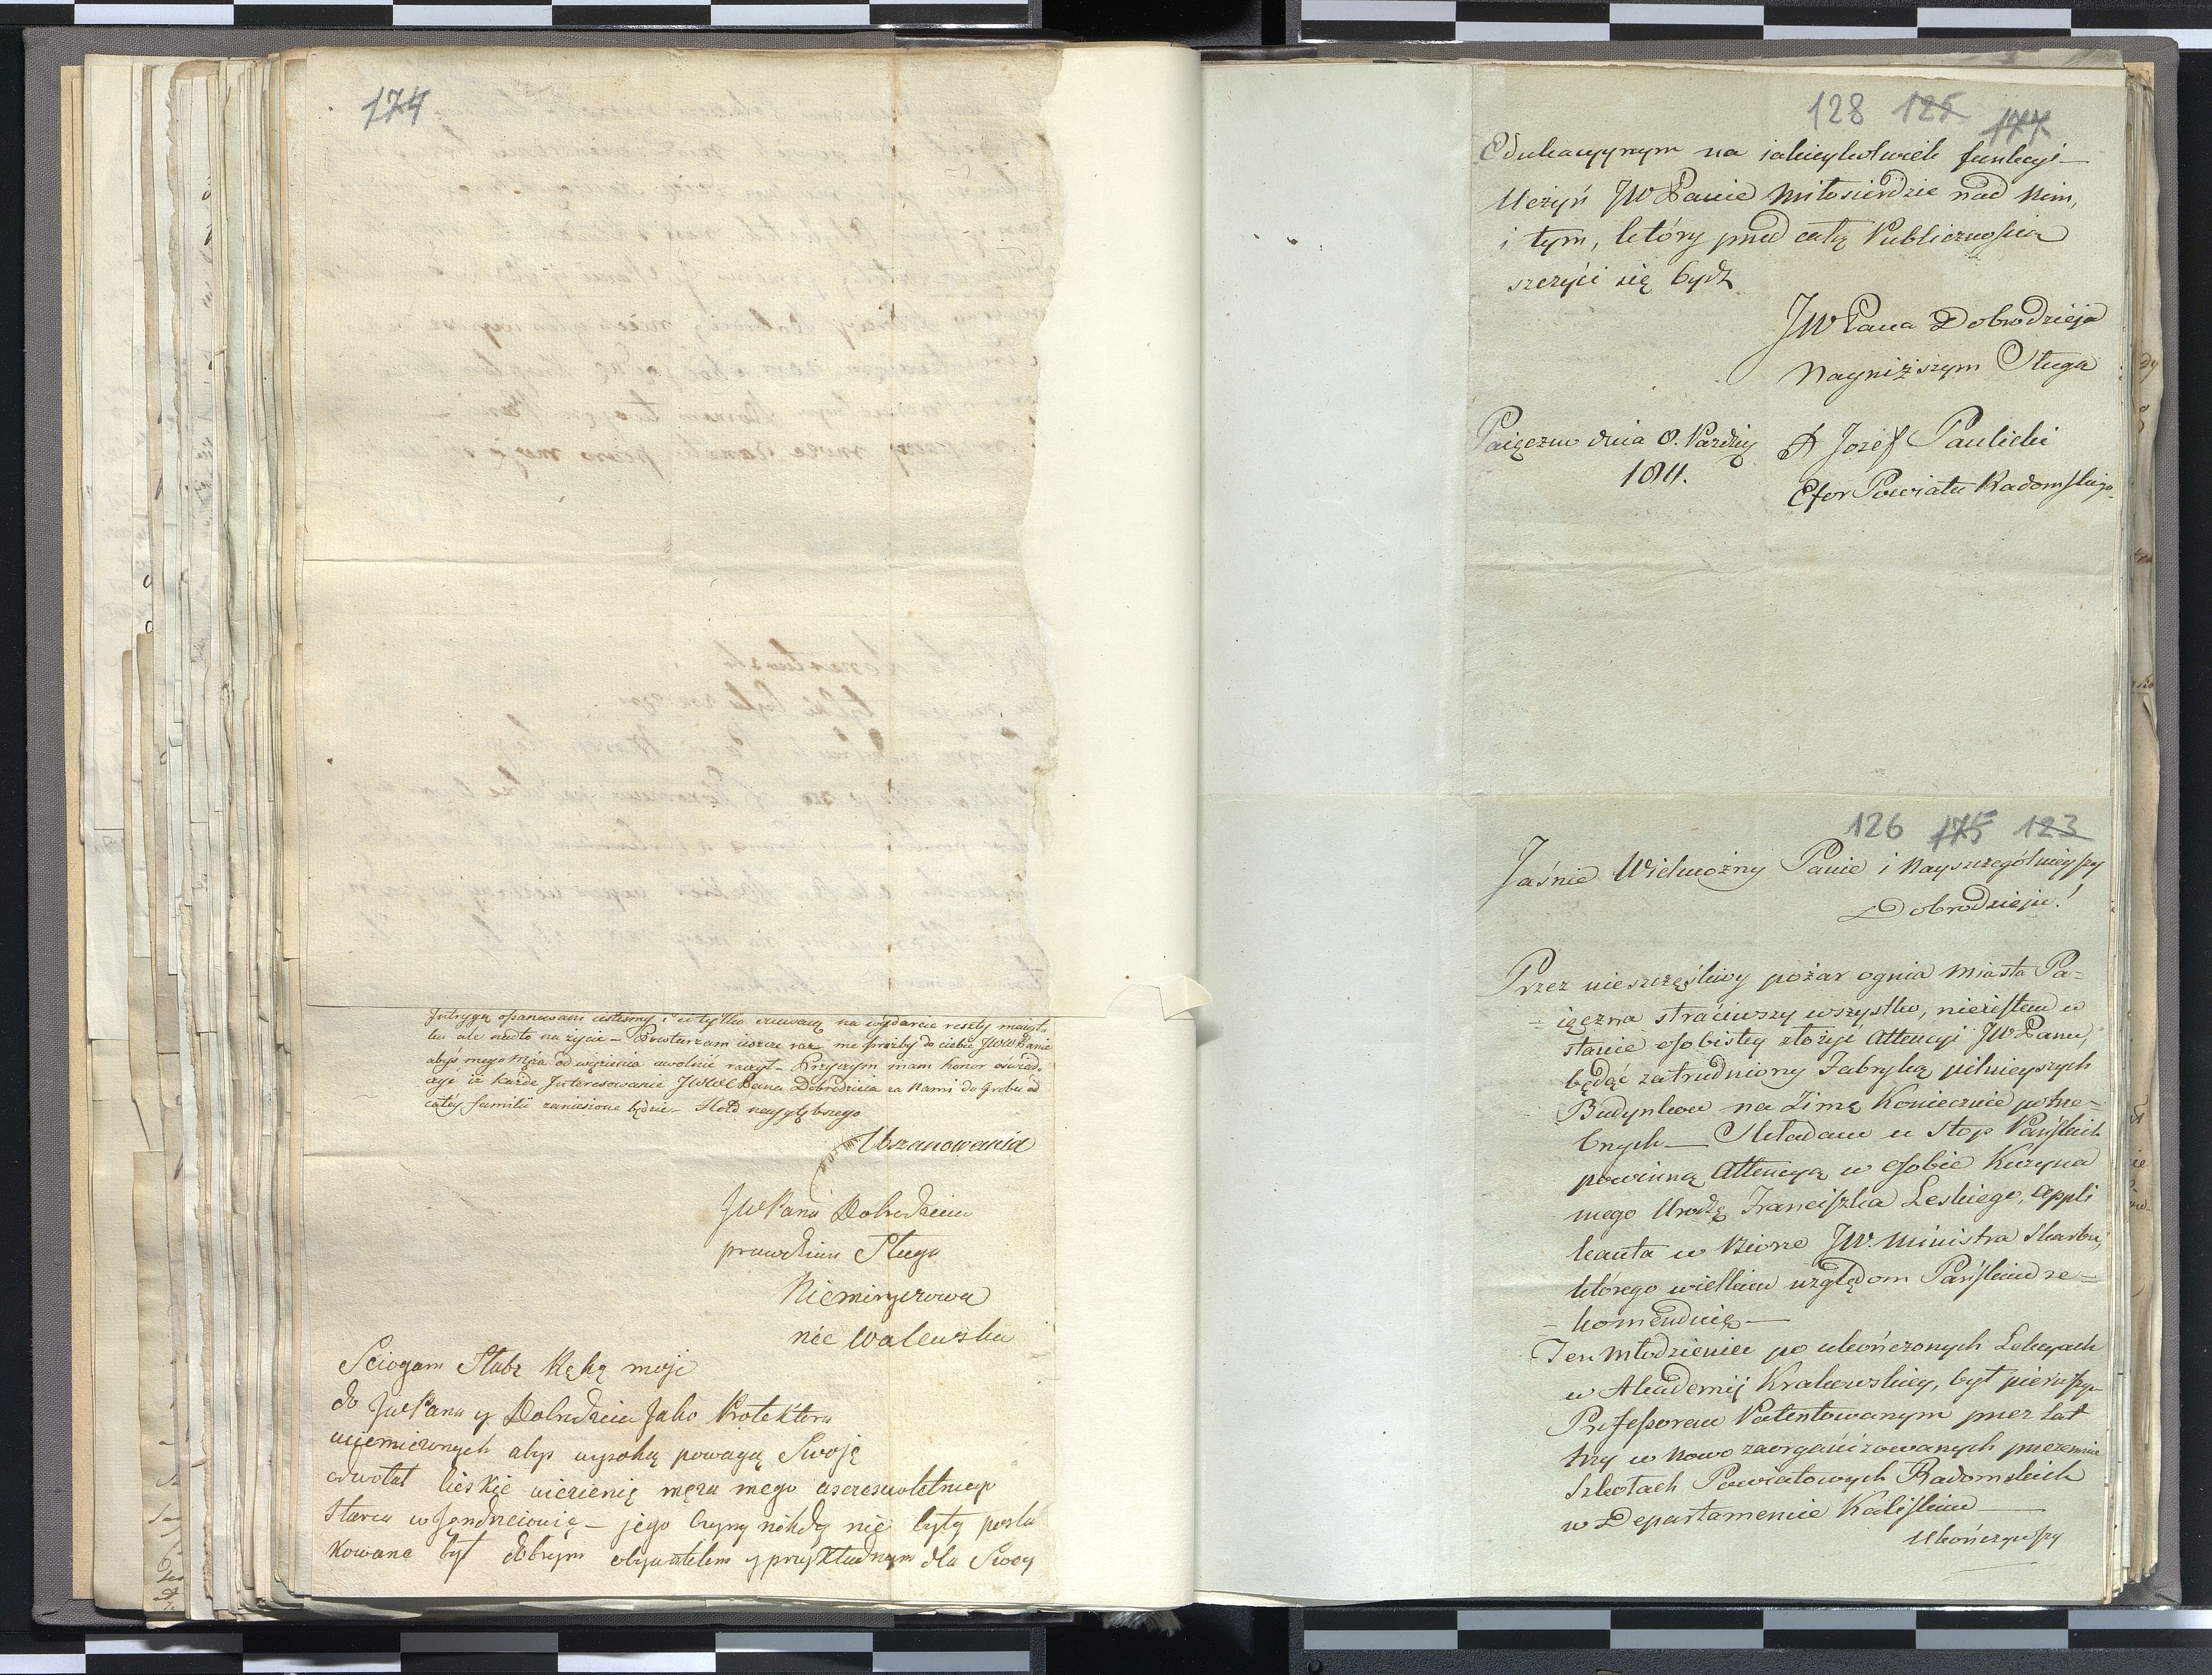 174
Intrygą opanowani jesteśmy i ci tylko czuwają na wydarcie reszty mająt-
ku ale nadto na życie – Powtarzam ieszcze raz me proźby do ciebie JWW Panie
abyś mego Męża od więzienia uwolnić raczył – Przyczym mam honor oświad-
czyć iż każde Interesowanie JWWPana Dobrodzieia za Nami do Grobu od
całéy familii zaniesione będzie – Hołd naygłębszego
Uszanowania
JWPana Dobrodzieia
prawdziwa Sługa
Niemiryczowa
née Walewska
Sciogam Słabą Rękę moję
do JWPana y Dobrodzieia Jako Protektora
uciemiezonych abys wysoką powagą Swoję
odwołał
męza mego
Starca w Jendrzeiowie – jego Czyny nikdy nie były
kowane był dobrym obywatelem y przykładnym dla Swey
128 125 177
Edukacyynym na iakieykolwiek funkcyi –
Uczyń JWPanie Miłosierdzie nad Nim,
i tym, który przed całą Publicznością
szczyci się bydź
JWPana Dobrodzieja
Nayniższym Sługa
Paięczno dnia 8. Paźdz
1811.
X Jozef Paulicki
Efor Powiatu Radomskiego
126 175 123
Jaśnie Wielmożny Panie i Nayszczególnieyszy
Dobrodzieju!
Przez nieszczęśliwy pożar ognia Miasta Pa=
= ięczna straciwszy wszystko, nieiestem w
stanie osobistey złożyć Attencyi JWPanu,
będąc zatrudniony Fabryką pilnieyszych
Budynkow na Zimę Koniecznie potrze-
bnych — Składam u stop Pańskich
powinną Attencyą w osobie Kuzyna
mego Urodz Franciszka Leskiego, Appli
kanta w Biorze JW. Ministra Skarbu,
którego wielkim względom Pańskim re=
- komenduię —
Ten Młodzieniec po ukończonych Lekcyach
w Akademij Krakowskiey, był pierwszym
Professorem Patentowanym przez lat
trzy w Nowo zaorganizowanych przezemnie
Szkołach Powiatowych Radomskich
w Departamencie Kaliskim —
Ukończywszy